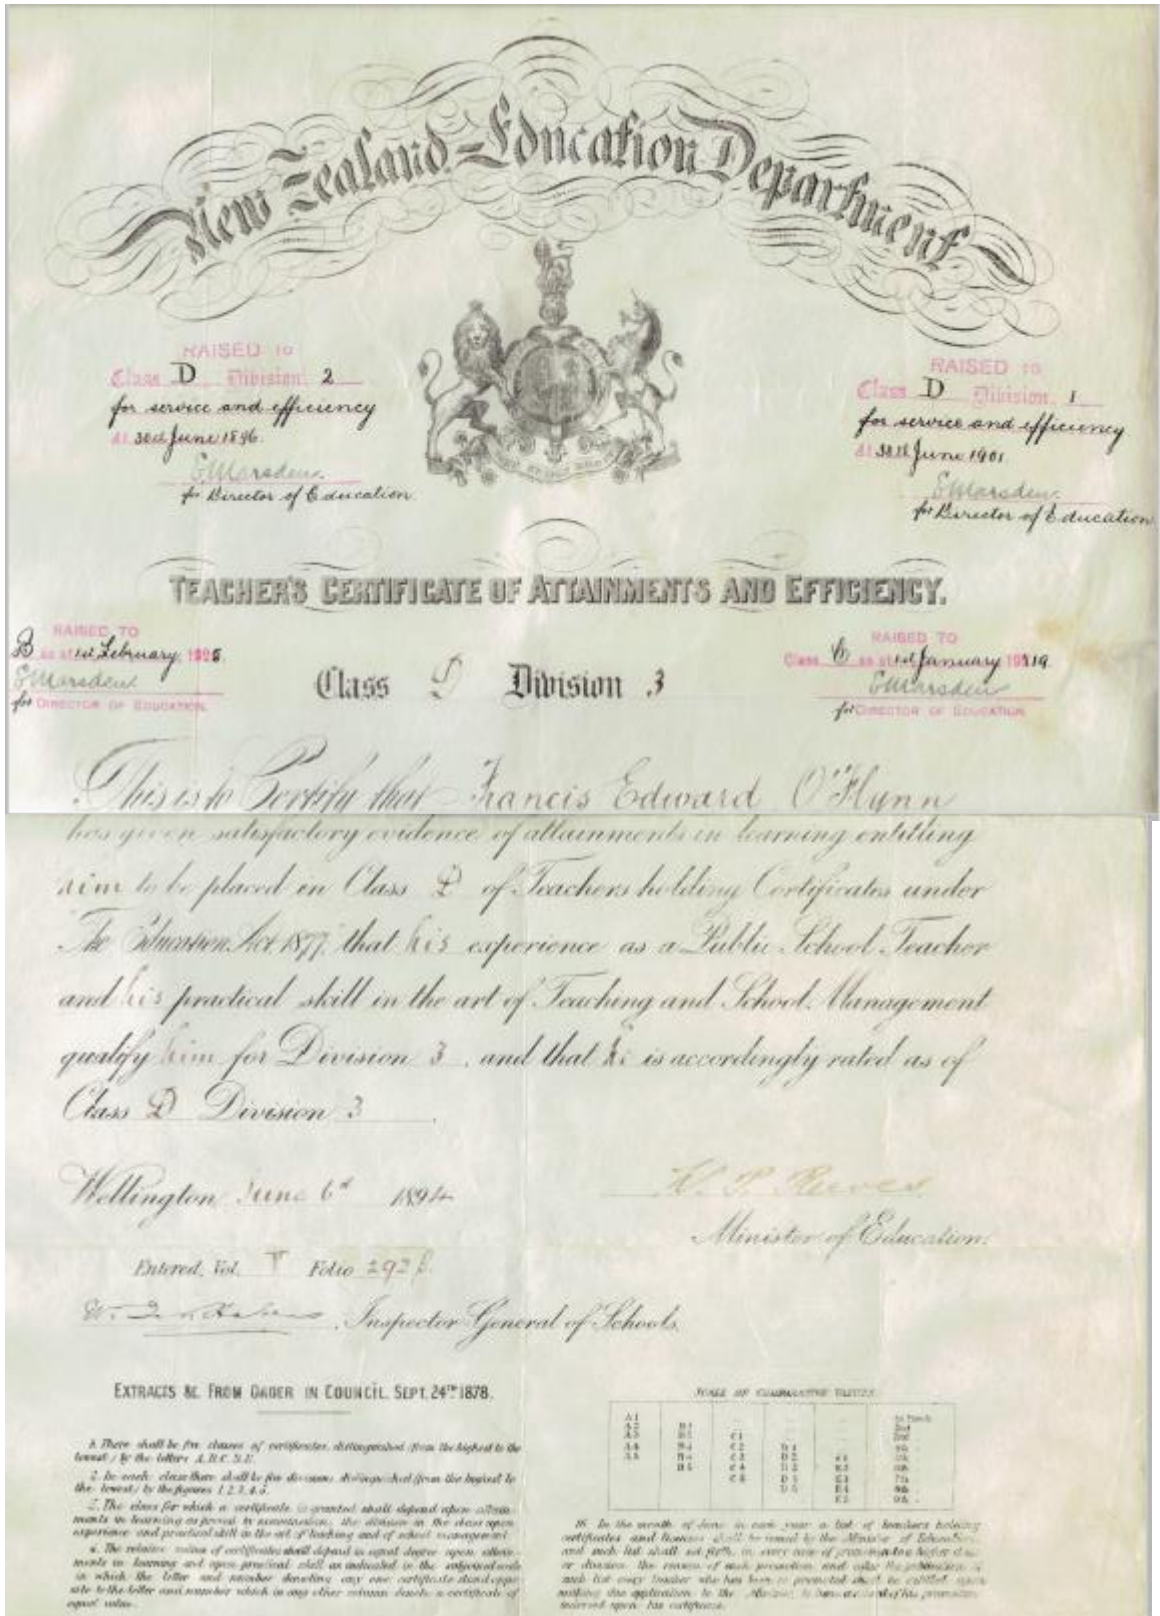 New Zealand Education Department
RAISED to
Class D Division 2
for service and efficiency
At 30th June 1896.
E Marsden.
for Director of Education
RAISED to
Class D Division 1
for service and efficiency
At 30th June 1901
E Marsden.
for Director of Education
TEACHER'S CERTIFICATE OF ATTAINMENTS AND EFFICIENCY.
RAISED TO
B as at 1st February,
E Marsden
for DIRECTOR OF EDUCATION.
Class D Division 3
RAISED TO
Class C as at 1st January 1919.
E Marsden
for DIRECTOR OF EDUCATION
This is to Certify that Francis Edward O'Flynn
has given satisfactory evidence of attainments in learning entitling
him to be placed in Class D of Teachers holding Certificates under
The Education Act 1877, that his experience as a Public School Teacher
and his practical skill in the art of Teaching and School Management
qualify him for Division 3, and that he is accordingly rated as of
Class D Division 3.
Wellington June 6th 1894
W. P. Reeves
Minister of Education.
Entered, Vol. Folio
Inspector General of Schools.
EXTRACTS &c. FROM ORDER IN COUNCIL. SEPT. 24TH 1878.
There shall be five classes of certificates, distinguished (from the highest to the
lowest) by the letters A.B.C.D.E.
2. In each class there shall be five divisions distinguished (from the highest to
the lowest) by the figures 1.2.3.4.5.
The class for which a certificate is granted shall depend upon attain-
ments in learning as proved by examination, the division in the class upon
experience and practical skill in the art of teaching and of school management.
The relative value of certificates shall depend in equal degree upon attain-
ments in learning and upon practical skill as indicated in the subjoined scale
in which the letter and number denoting any one certificate stand oppo-
site to the letter and number which in any other column denote a certificate of
equal value.
SCALE OF COMPARATIVE VALUES
A1
A2 B1
C1
C2 D1
D2
In the month of June in each year a list of teachers holding
certificates and licenses shall be issued by the Minister of Education,
and such list shall set forth, in every case of promotion to a higher class
or division, the reason of such promotion
such list every teacher who has been so promoted shall be entitled upon
making due application to the Minister to have a record of his promotion
indorsed upon his certificate.